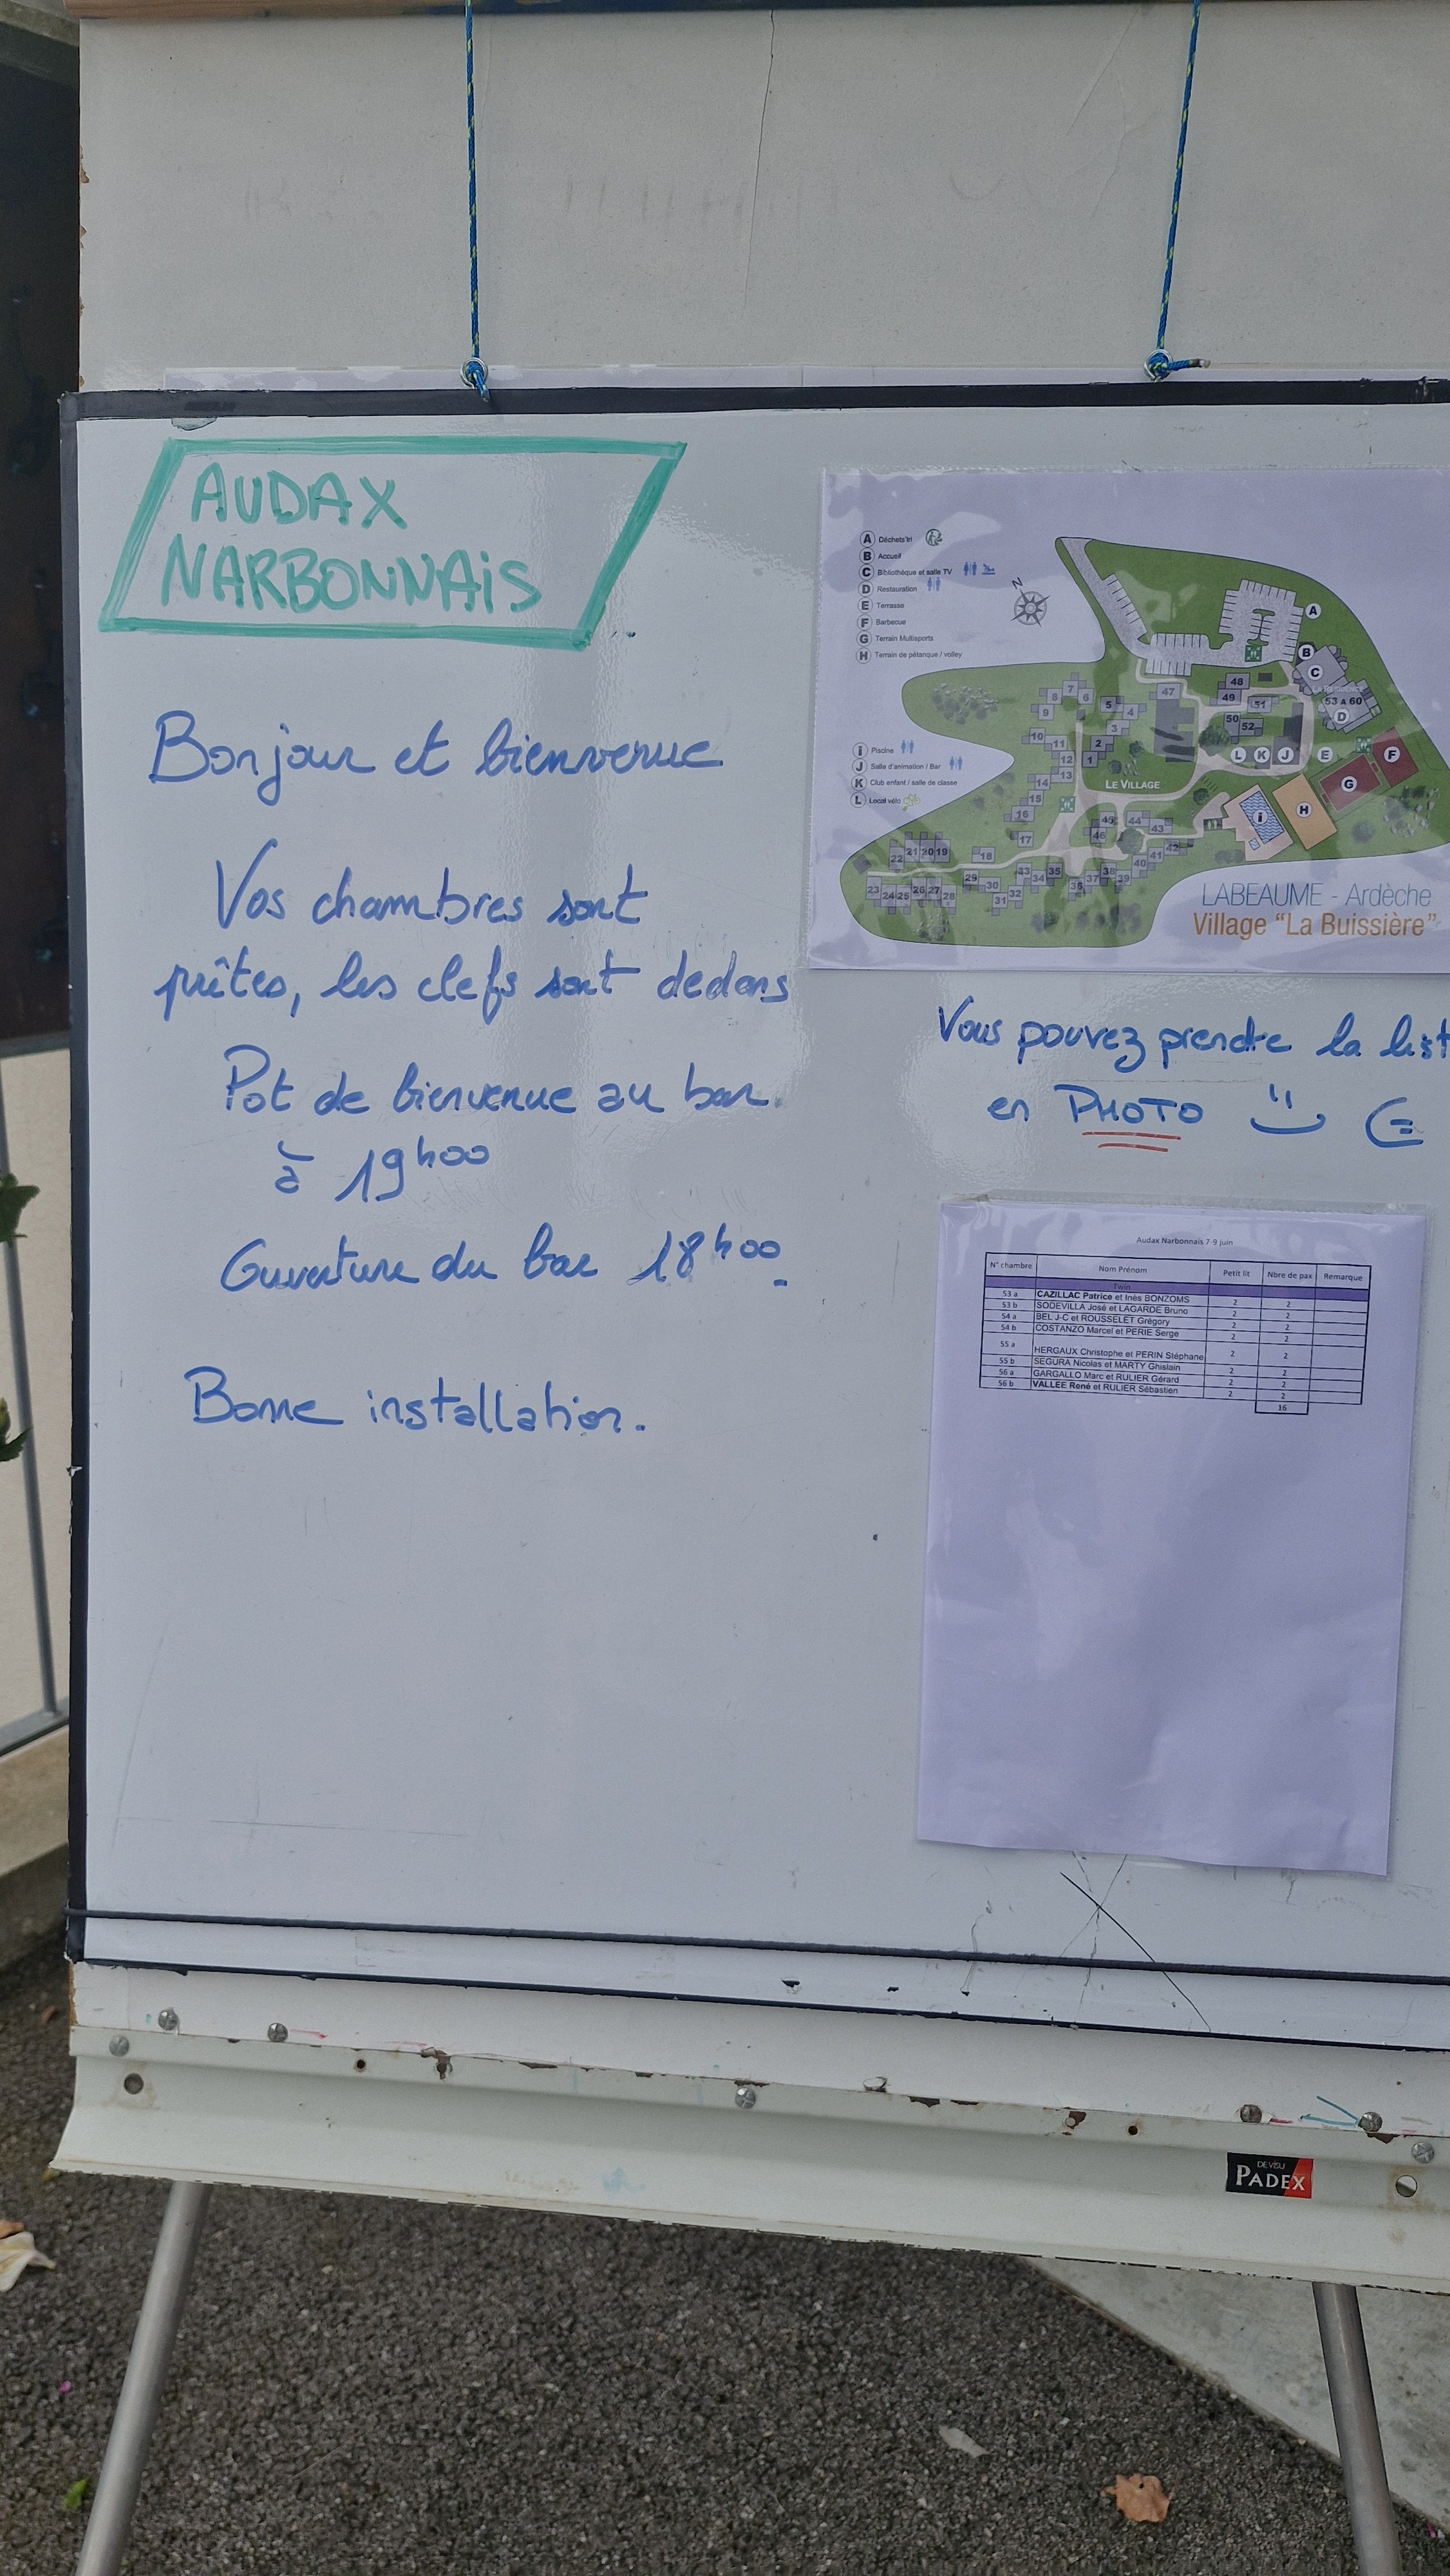 AUDAX
NARBONNAIS
Bonjour et bienvenue
Vos chambres sont
prêtes, les clefs sont dedans
Pot de bienvenue au bar.
à 19h00
Ouverture du bar 18h00.
Bonne installation.
A Déchets/tri
B Accueil
C Bibliothèque et salle TV
D Restauration
E Terrasse
F Barbecue
G Terrain Multisports
H Terrain de pétanque / volley
I Piscine
J Salle d'animation / Bar
K Club enfant / salle de classe
L Local vélo
N
A
B
C
53 A 60
D
48
49
51
50
52
47
L K J E F
G
H
I
8 7 6
9
5
4
3
10
11
2
12
1
13
14
15
16
17
LE VILLAGE
45 44 43
46
42
41
40
22 21 20 19
18
23 24 25 26 27 28
29 30 31 32
33 34 35 36 37 38 39
LABEAUME - Ardèche
Village "La Buissière"
Vous pouvez prendre la list
en PHOTO
Audax Narbonnais 7-9 juin
N° chambre Nom Prénom Petit lit Nbre de pax Remarque
Twin
53 a CAZILLAC Patrice et Inès BONZOMS 2 2
53 b SODEVILLA José et LAGARDE Bruno 2 2
54 a BEL J-C et ROUSSELET Grégory 2 2
54 b COSTANZO Marcel et PERIE Serge 2 2
55 a HERGAUX Christophe et PERIN Stéphane 2 2
55 b SEGURA Nicolas et MARTY Ghislain 2 2
56 a GARGALLO Marc et RULIER Gérard 2 2
56 b VALLEE René et RULIER Sébastien 2 2
16
DEVISU
PADEX